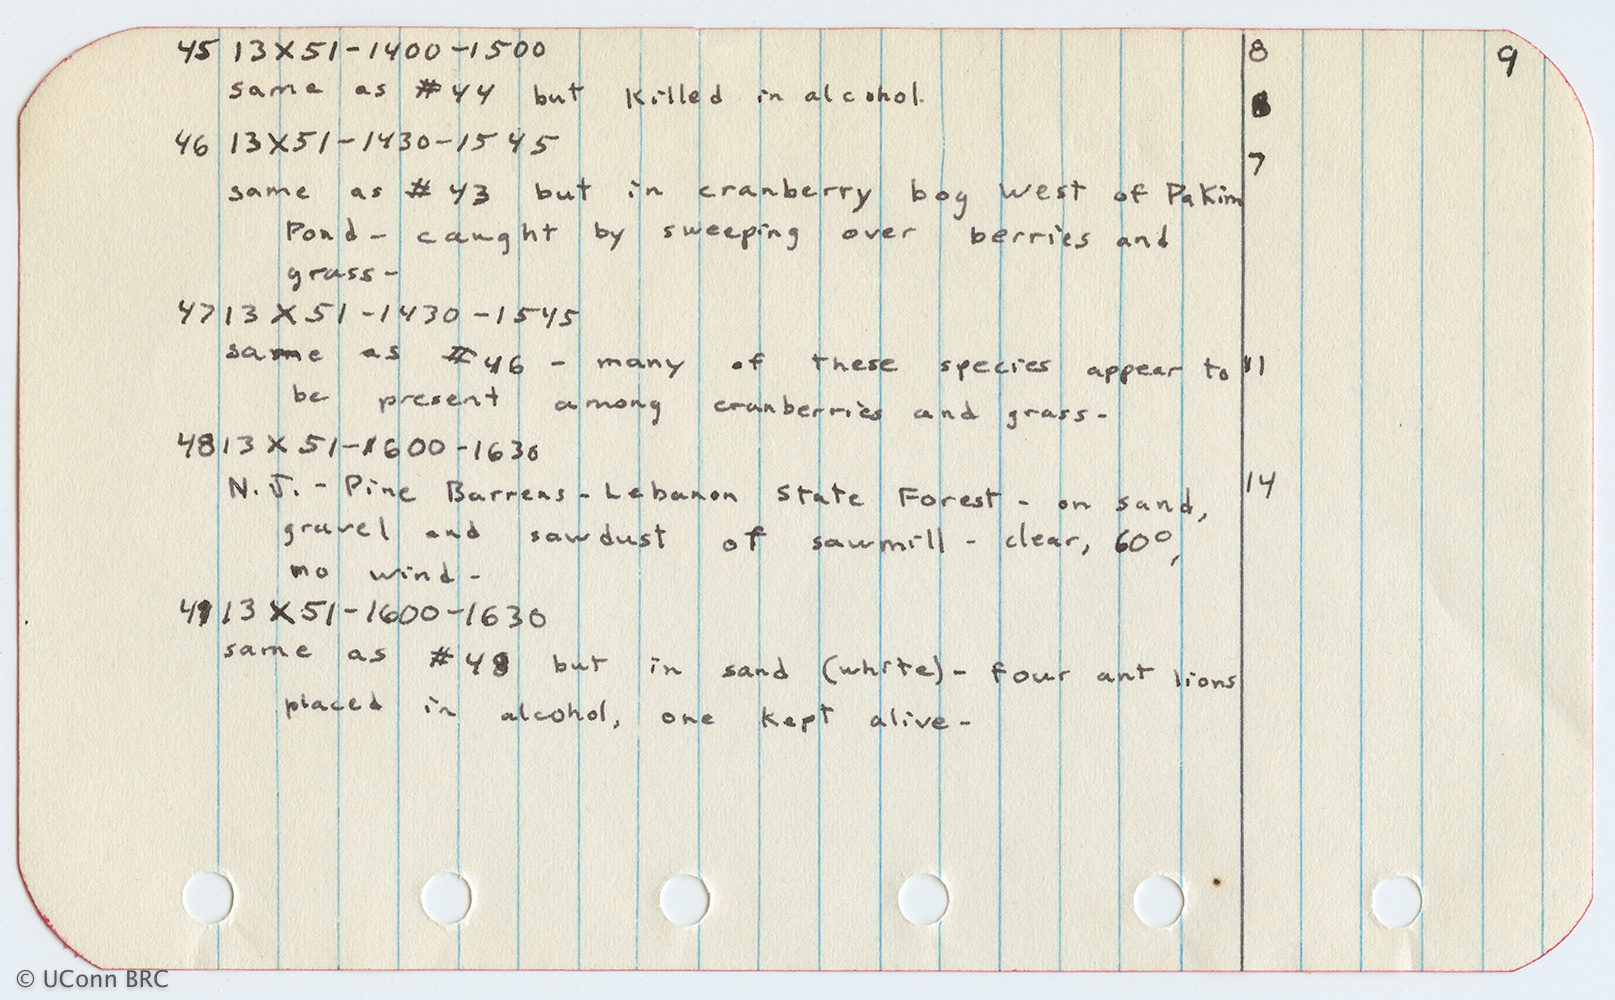 45 13X51-1400-1500 8 9
same as #44 but killed in alcohol.
46 13X51-1430-1545 7
same as #43 but in cranberry bog west of Pakim
Pond - caught by sweeping over berries and
grass -
47 13X51-1430-1545
same as #46 - many of these species appear to 11
be present among cranberries and grass -
48 13X51-1600-1630
N.J. - Pine Barrens - Lebanon State Forest - on sand, 14
gravel and sawdust of sawmill - clear, 60°,
no wind -
49 13X51-1600-1630
same as #48 but in sand (white) - four ant lions
placed in alcohol, one kept alive -
© UConn BRC